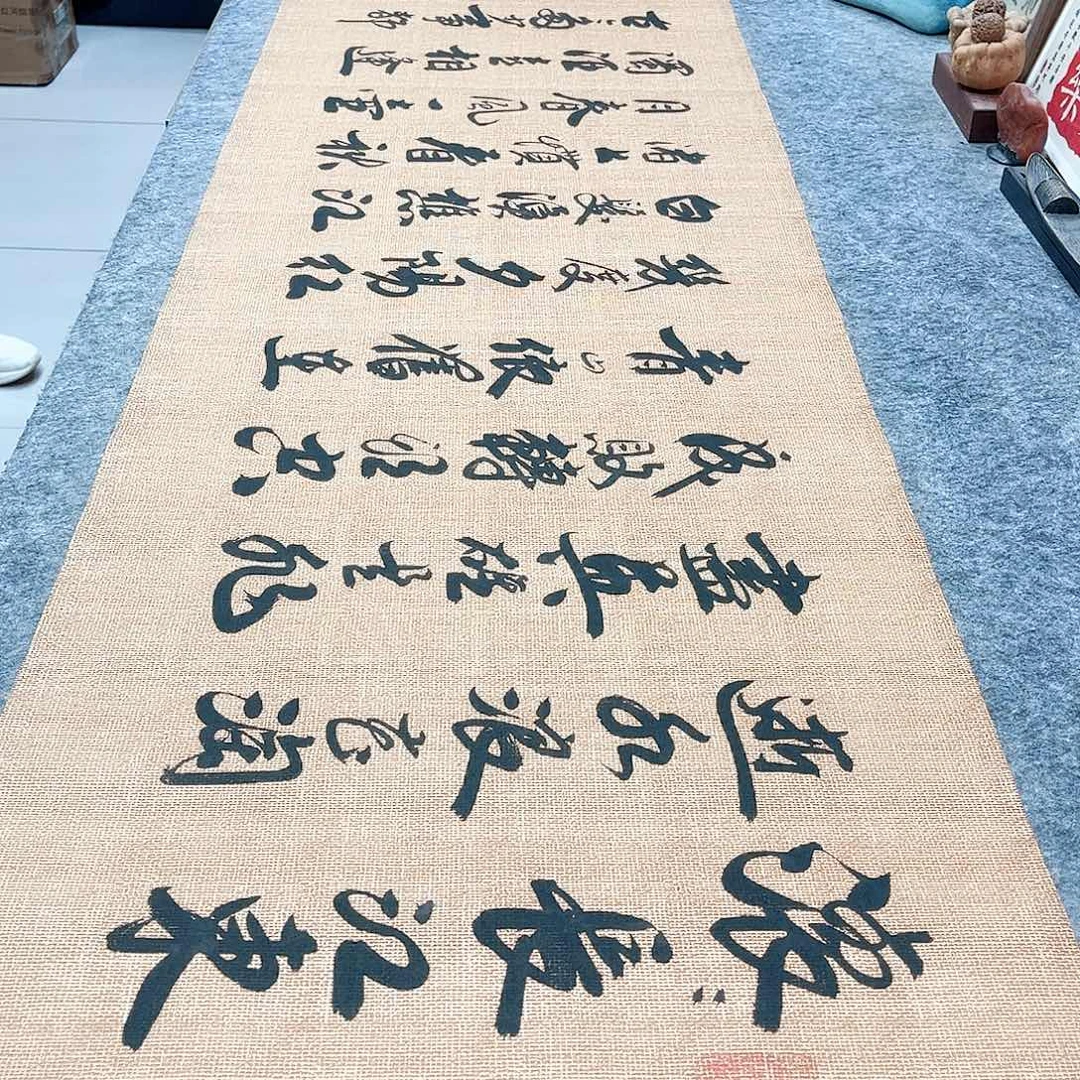 滾〻長江東
逝水浪花淘
盡英雄是非
成敗轉頭空
青山依舊在
幾度夕陽紅
白髮漁樵江
渚上慣看秋
月春風一壺
濁酒喜相逢
古今多少事都